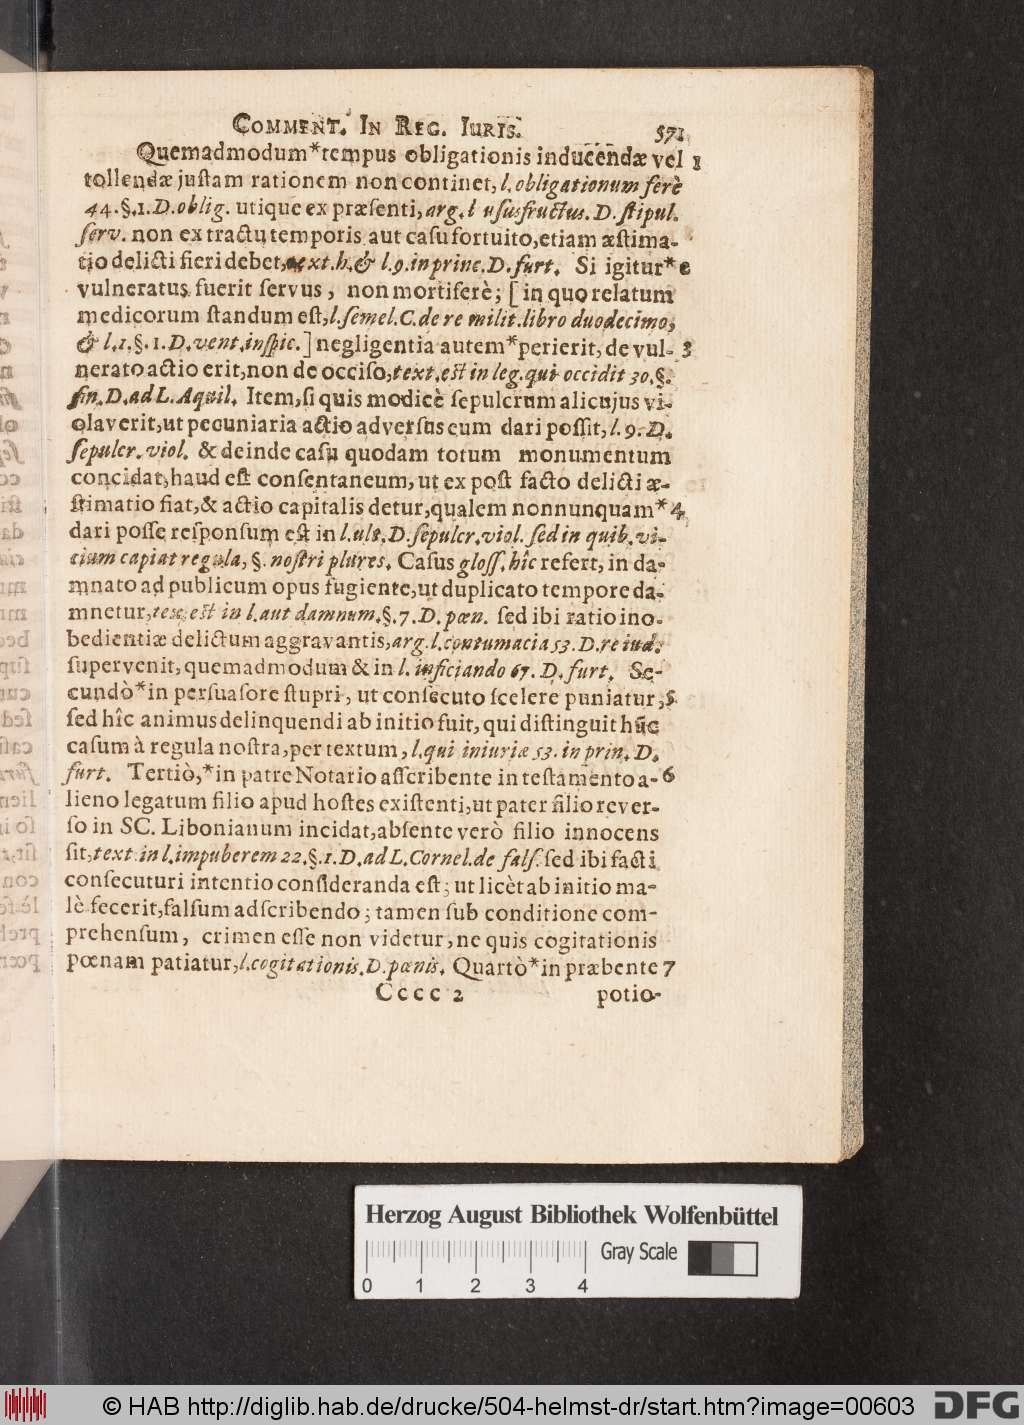 COMMENT. IN REG. IURIS. 571
Quemadmodum*tempus obligationis inducendæ vel 1
tollendæ juſtam rationem non continet, l. obligationum ferè
44. §. 1. D. oblig. utique ex præſenti, arg. l uſusfructus. D. ſtipul.
ſerv. non ex tractu temporis aut caſu fortuito, etiam æſtima-
tio delicti fieri debet, text. h. & l. 9. in princ. D. furt. Si igitur* 2
vulneratus fuerit ſervus, non mortiferè; [in quo relatum
medicorum ſtandum eſt, l. ſemel. C. de re milit. libro duodecimo,
& l. 1. §. 1. D. vent. inſpic.] negligentia autem*perierit, de vul- 3
nerato actio erit, non de occiſo, text. eſt in leg. qui occidit 30. §.
fin. D. ad L. Aquil. Item, ſi quis modicè ſepulcrum alicujus vi-
olaverit, ut pecuniaria actio adverſus eum dari poſſit, l. 9. D.
ſepulcr. viol. & deinde caſu quodam totum monumentum
concidat, haud eſt conſentaneum, ut ex poſt facto delicti æ-
ſtimatio fiat, & actio capitalis detur, qualem nonnunquam* 4
dari poſſe reſponſum eſt in l. ult. D. ſepulcr. viol. ſed in quib. vi-
tium capiat regula, §. noſtri plures. Caſus gloſſ. hîc refert, in da-
mnato ad publicum opus fugiente, ut duplicato tempore da-
mnetur, tex. eſt in l. aut damnum. §. 7. D. pœn. ſed ibi ratio ino-
bedientiæ delictum aggravantis, arg. l. contumacia 53. D. re iud.
ſupervenit, quemadmodum & in l. inficiando 67. D. furt. Se-
cundò*in perſuaſore ſtupri, ut conſecuto ſcelere puniatur, 5
ſed hîc animus delinquendi ab initio fuit, qui diſtinguit hūc
caſum à regula noſtra, per textum, l. qui iniuriæ 53. in prin. D.
furt. Tertiò,*in patre Notario aſſcribente in teſtamento a- 6
lieno legatum filio apud hoſtes exiſtenti, ut pater filio rever-
ſo in SC. Libonianum incidat, abſente verò filio innocens
ſit, text in l. impuberem 22. §. 1. D. ad L. Cornel. de falſ. ſed ibi facti
conſecuturi intentio conſideranda eſt; ut licèt ab initio ma-
lè fecerit, falſum adſcribendo; tamen ſub conditione com-
prehenſum, crimen eſſe non videtur, ne quis cogitationis
pœnam patiatur, l. cogitationis. D. pœnis. Quartò*in præbente 7
Cccc 2 potio-
Herzog August Bibliothek Wolfenbüttel
Gray Scale
0 1 2 3 4
© HAB http://diglib.hab.de/drucke/504-helmst-dr/start.htm?image=00603 DFG